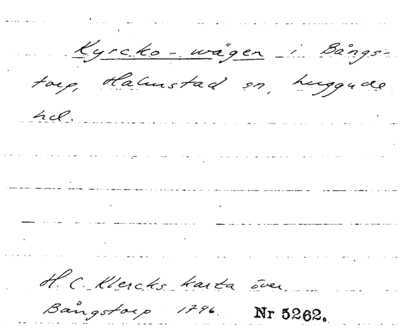 Kyrcko-wägen i Bångs-
torp, Halmstad sn, Luggude
hd.
H. C. Klercks karta över
Bångstorp 1796. Nr 5262.